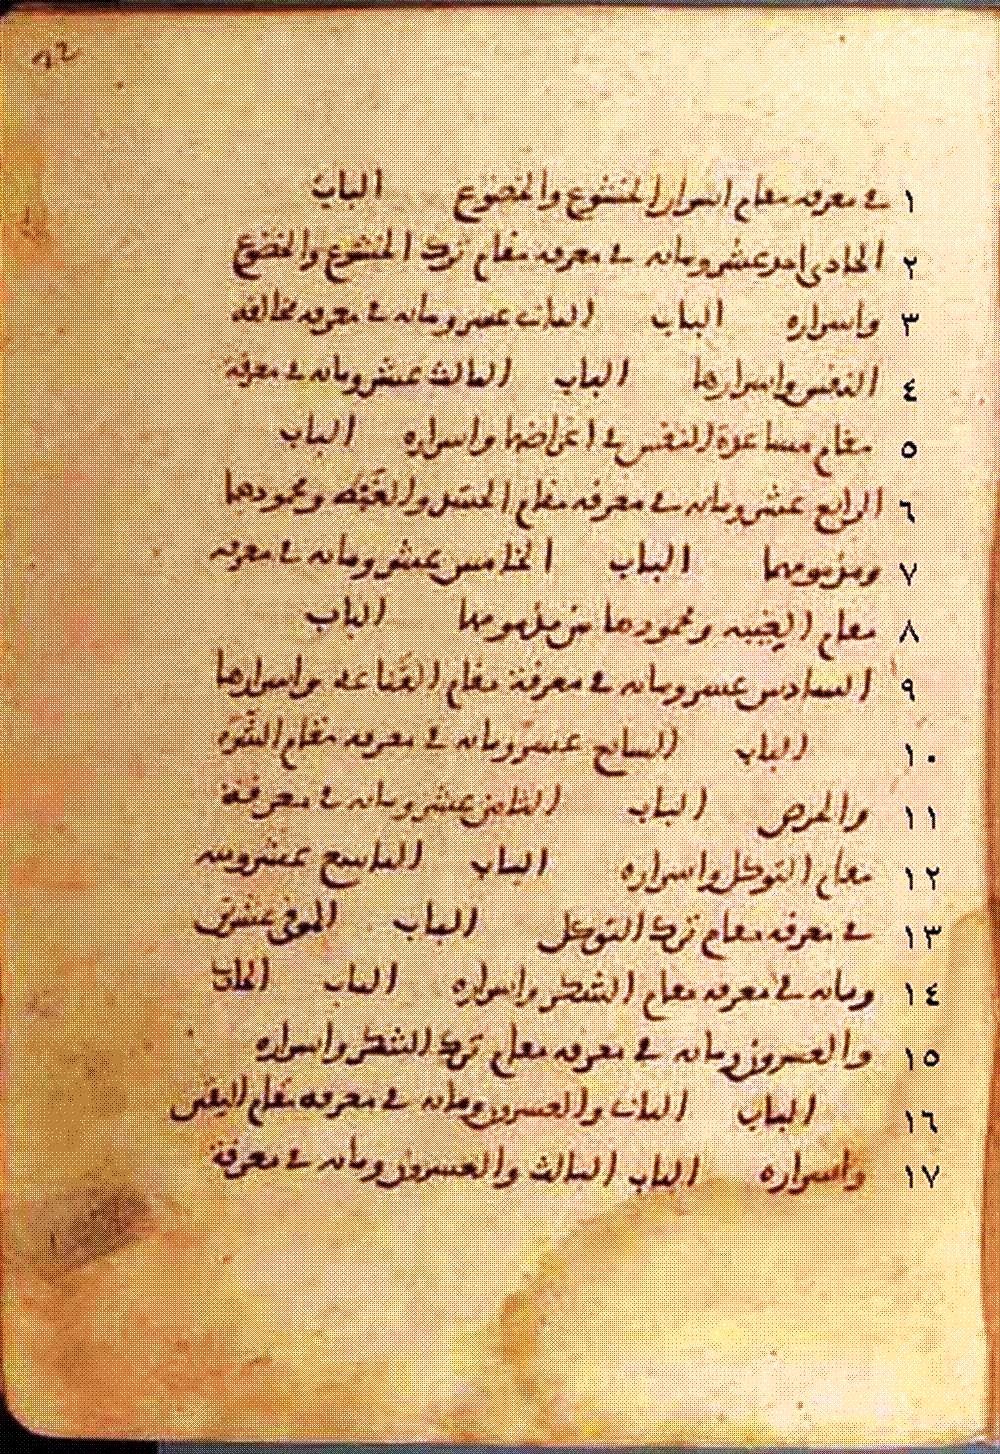 ١ في معرفه مقام اسرار الخشوع والخضوع الباب
٢ الحادي احد عشر ومايه في معرفه مقام ترك الخشوع والخضوع
٣ واسراره الباب الثاني عشر ومايه في معرفه مخالفه
٤ النفس واسرارها الباب الثالث عشر ومايه في معرفة
٥ مقام مساعدة النفس في اغراضها واسراره الباب
٦ الرابع عشر ومايه في معرفه مقام الحسد والغبطه ومحمودها
٧ ومذمومهما الباب الخامس عشر ومايه في معرفه
٨ مقام الغيبه ومحمودها من مذمومها الباب
٩ السادس عشر ومايه في معرفة مقام القناعه واسرارها
١٠ الباب السابع عشر ومايه في معرفه مقام الشره
١١ والحرص الباب الثامن عشر ومايه في معرفة
١٢ مقام التوكل واسراره الباب التاسع عشر ومايه
١٣ في معرفه مقام ترك التوكل الباب الموفي عشرين
١٤ ومايه في معرفه مقام الشكر واسراره الباب الحادي
١٥ والعشرون ومايه في معرفه مقام ترك الشكر واسراره
١٦ الباب الثاني والعشرون ومايه في معرفه مقام اليقين
١٧ واسراره الباب الثالث والعشرون ومايه في معرفة